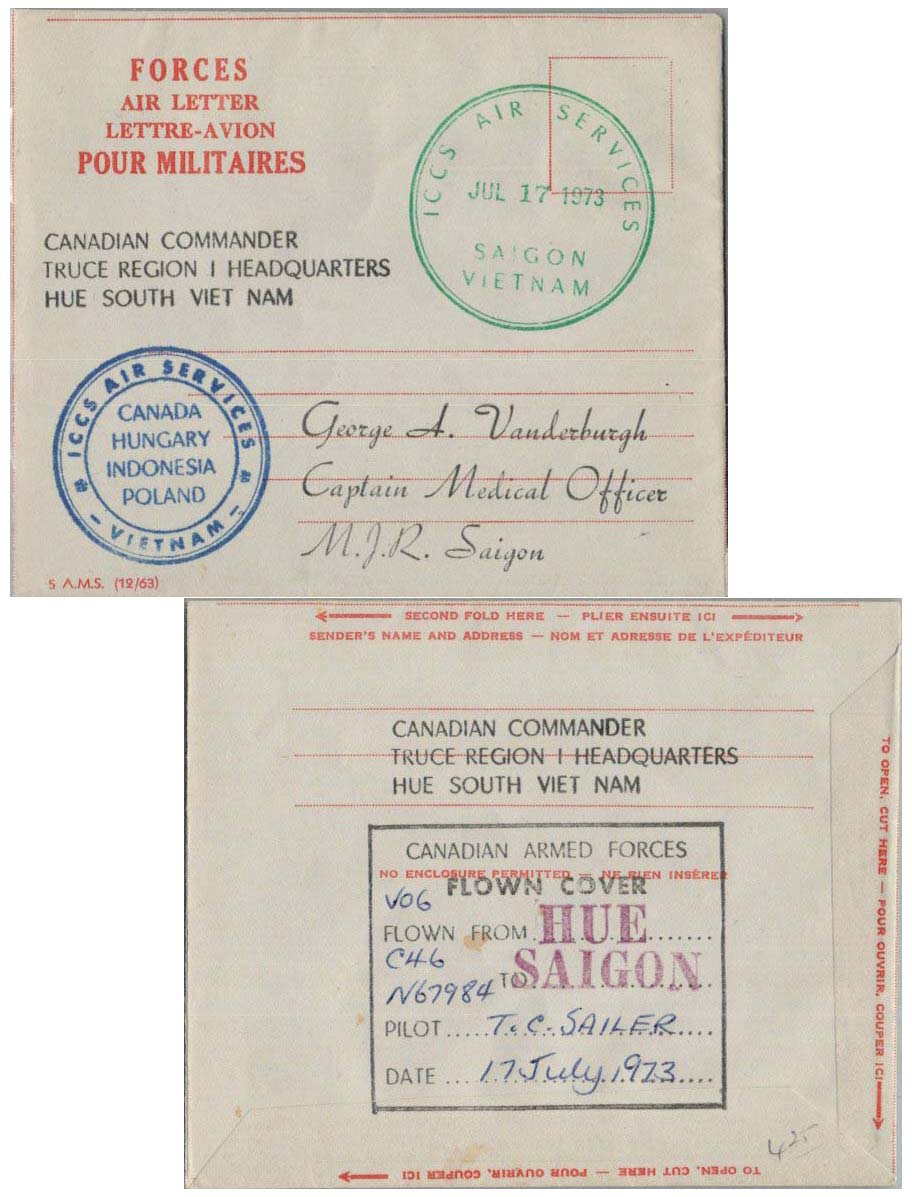 FORCES
AIR LETTER
LETTRE-AVION
POUR MILITAIRES
ICCS AIR SERVICES
JUL 17 1973
SAIGON
VIETNAM
CANADIAN COMMANDER
TRUCE REGION I HEADQUARTERS
HUE SOUTH VIET NAM
ICCS AIR SERVICES
CANADA
HUNGARY
INDONESIA
POLAND
- VIETNAM -
George A. Vanderburgh
Captain Medical Officer
M.J.R. Saigon
5 A.M.S. (12/63)
SECOND FOLD HERE — PLIER ENSUITE ICI
SENDER'S NAME AND ADDRESS — NOM ET ADRESSE DE L'EXPÉDITEUR
CANADIAN COMMANDER
TRUCE REGION I HEADQUARTERS
HUE SOUTH VIET NAM
TO OPEN, CUT HERE — POUR OUVRIR, COUPER ICI
CANADIAN ARMED FORCES
NO ENCLOSURE PERMITTED — NE RIEN INSÉRER
FLOWN COVER
V06
FLOWN FROM HUE
C46
TO SAIGON
N67984
PILOT.....T.C. SAILER....
DATE ...17 July 1973....
425
TO OPEN, CUT HERE — POUR OUVRIR, COUPER ICI